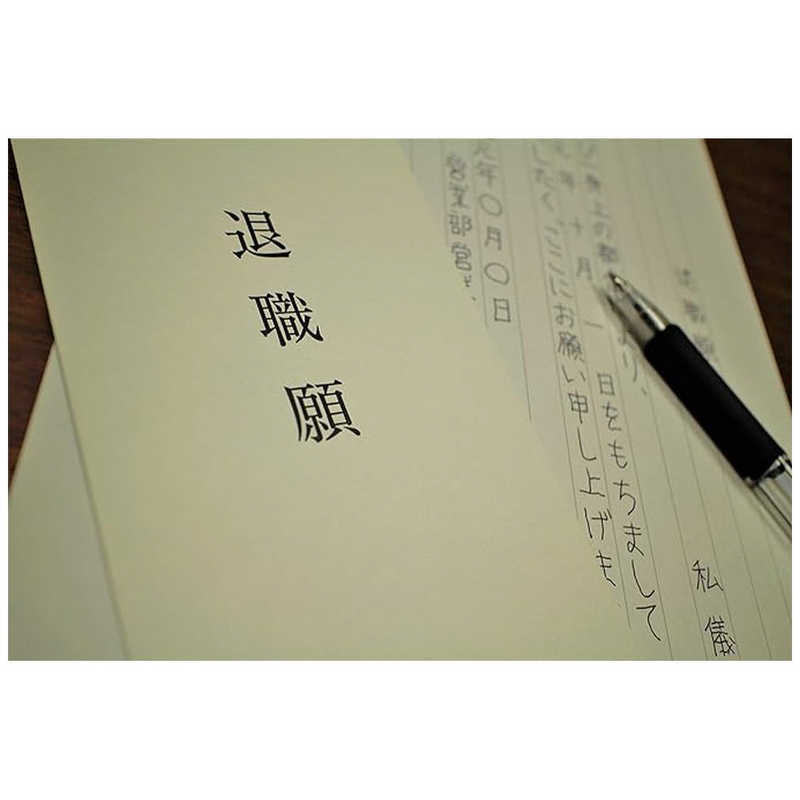 退職願
退職願
私儀
身上の都 より、
年十月一日をもちまして
したく、ここにお願い申し上げま
元年〇月〇日
営業部営